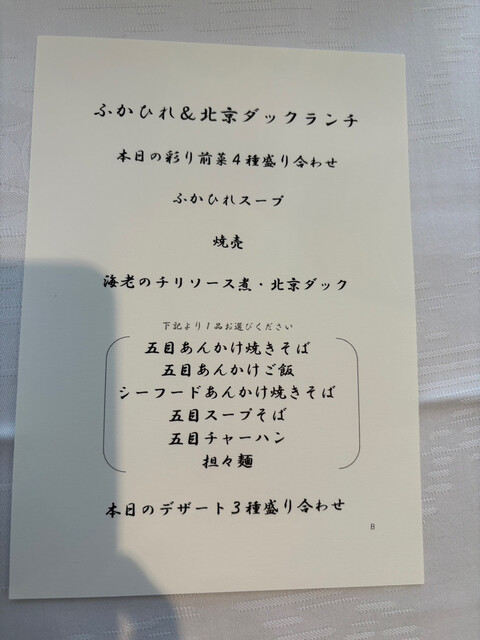 ふかひれ&北京ダックランチ
本日の彩り前菜4種盛り合わせ
ふかひれスープ
焼売
海老のチリソース煮・北京ダック
下記より1品お選びください
五目あんかけ焼きそば
五目あんかけご飯
シーフードあんかけ焼きそば
五目スープそば
五目チャーハン
担々麺
本日のデザート3種盛り合わせ
B